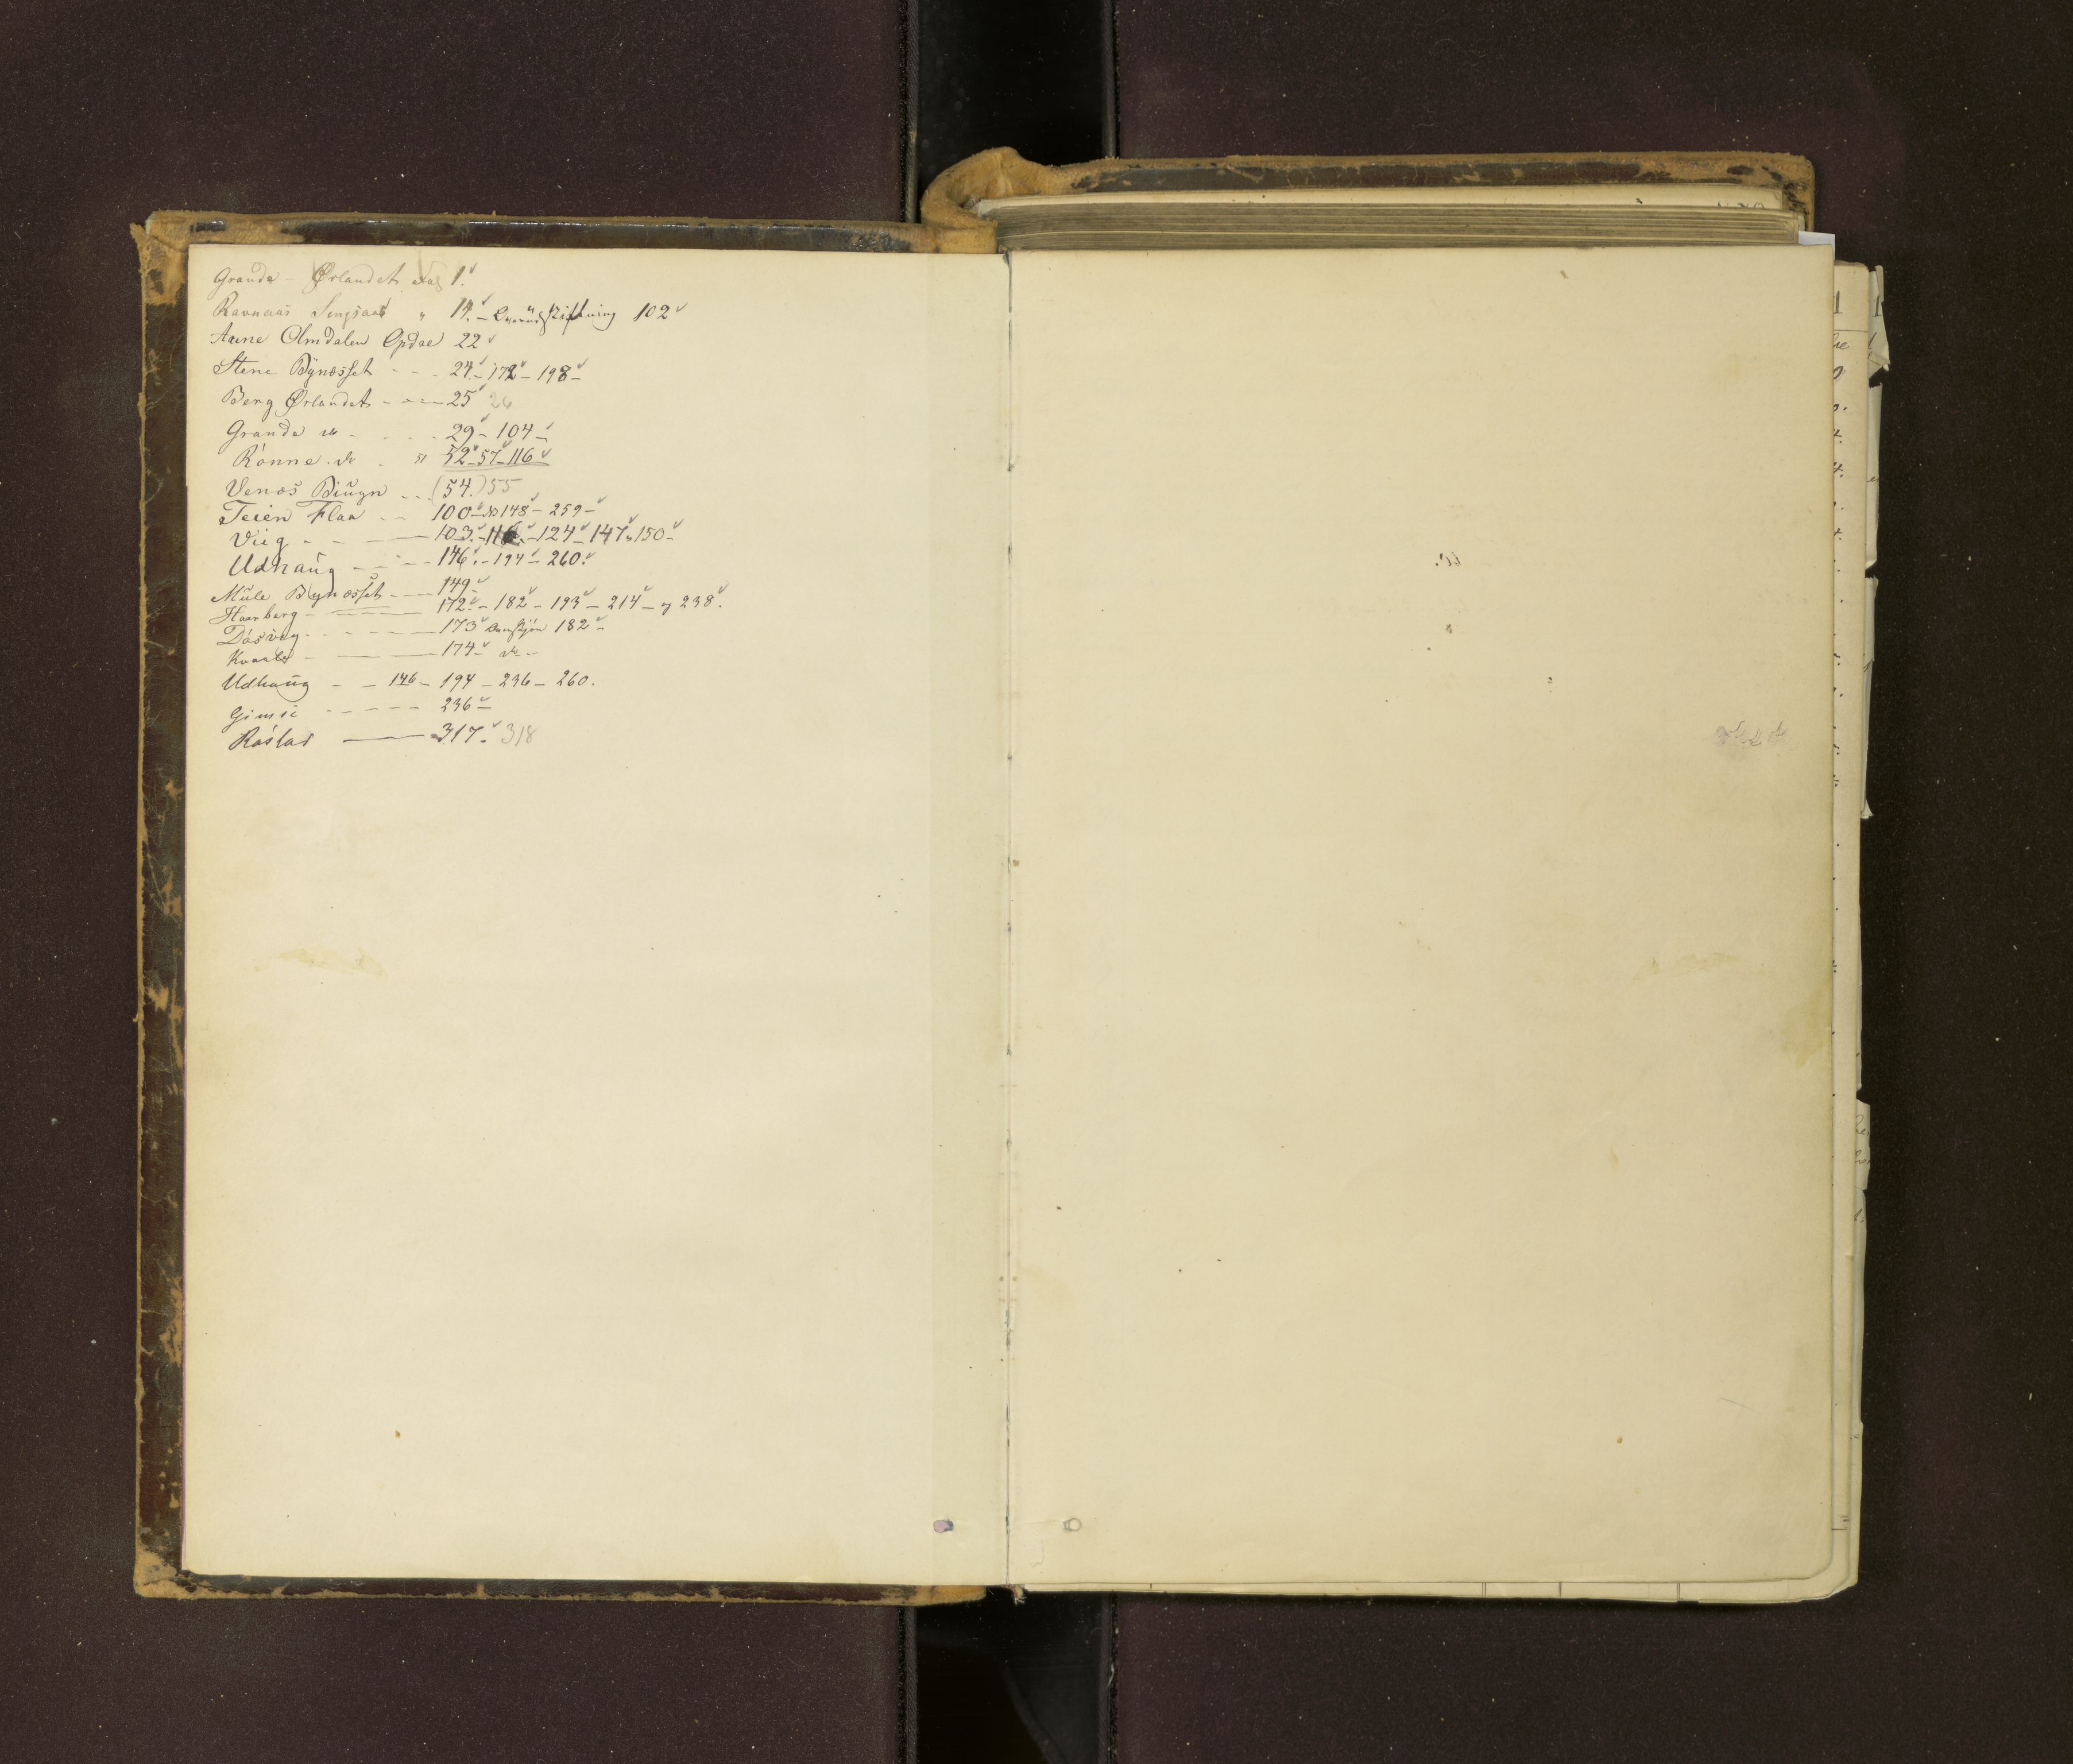 Grande - Ørlandet Pag 1.
Ravnaas Singsaas " 14. - Overudskiftning 102
Aune Olmdalen Opdal 22
Stene Bÿnæsset - - - 24. - 172 - 198 -
Berg Ørlandet - - - - 25 26
Grande do - - - - 29 - 104 -
Rönne do - 51 52 - 57 - 116
Venæs Biŭgn - - - (54.) 55
Teien Flaa - - 100 - 148 - 259 -
Viig - - - 103. - - 124 - 147 - 150 -
Udhaŭg - - - - 146. - 194 - 260.
Mŭle Bynæsset - - 149 -
Haanberg - - - - 172. - 182 - 193 - 214 - og 238.
Dösvig - - - - - 173 182 -
Kvaale - - - 174 - do -
Udhaŭg - - 146 - 194 - 236 - 260.
Gimse - - - - - 236 -
Röstad - 317. 318